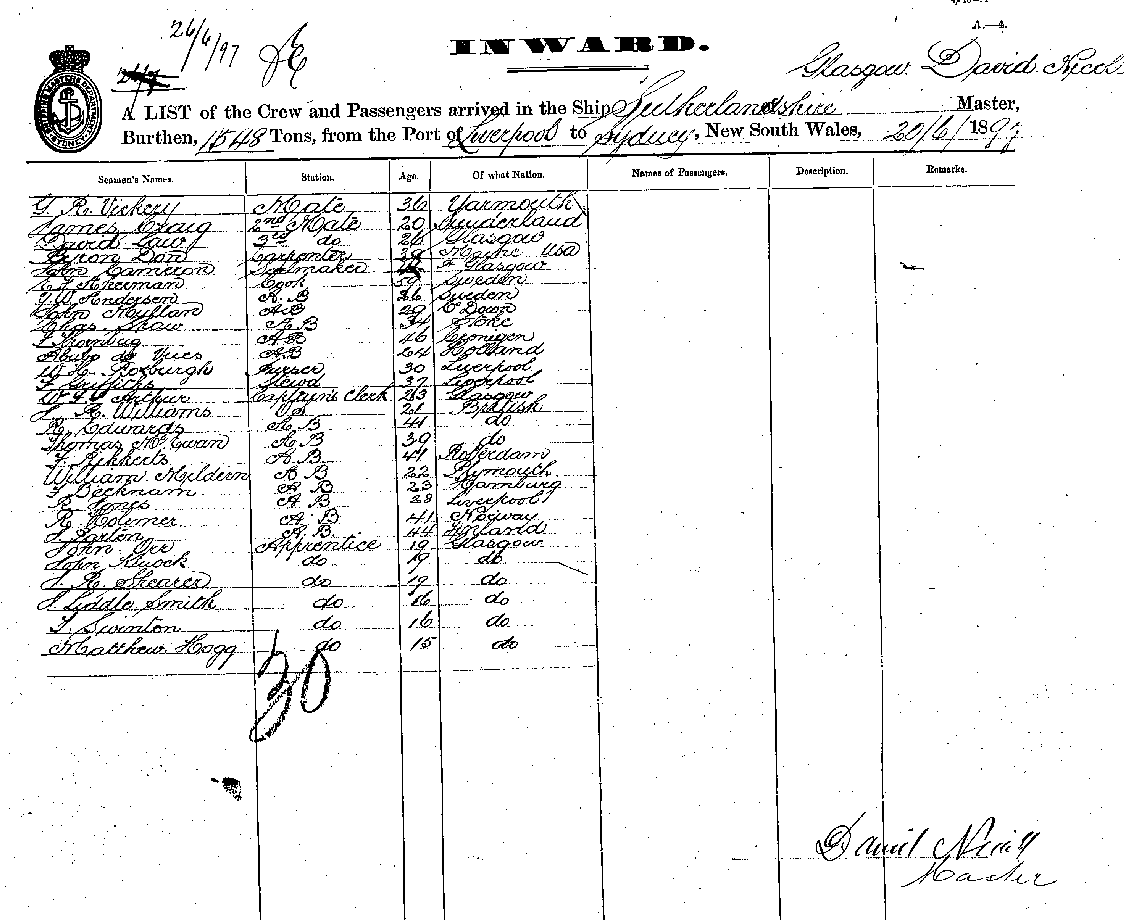 26/6/97
INWARD.
A.—4.
Glasgow. David Nicoll
A LIST of the Crew and Passengers arrived in the Ship Sutherlandshire Master,
Burthen, 1548 Tons, from the Port of Liverpool to Sydney, New South Wales, 20/6/1897
Seamen's Names. Station. Age. Of what Nation. Names of Passengers. Description. Remarks.
G. R. Vickery Mate 36 Yarmouth
James Craig 2nd Mate 20 Sunderland
David Law 3rd do 26 Glasgow
Don Carpenter 39 Maine USA
John Cameron Sailmaker Glasgow
Akerman Cook 59 Sweden
Andersen A.B 26 Sweden
John Mullan AB 29 C Down
Chas. Shaw A.B 34
AB 46
AB 24 Holland
W Roxburgh Purser 30 Liverpool
Griffiths Stewd 37 Liverpool
Arthur Captain's Clerk 23 Glasgow
R. Williams 21 British
R. Edwards A.B 41 do
Thomas McEwan A.B 39 do
Rikkerts A.B 41 Rotterdam
William Mildern A B 22 Plymouth
Becknam A B 23 Hamburg
R Jones A B 28 Liverpool
R. Holemer A. B 41 Norway
A.B. 44
John Orr Apprentice 19 Glasgow
John do 19 do
J. R. Shearer do 19 do
J. Liddle Smith do 16 do
Swinton do 16 do
Matthew Hogg do 15 do
30
David Nicoll
Master